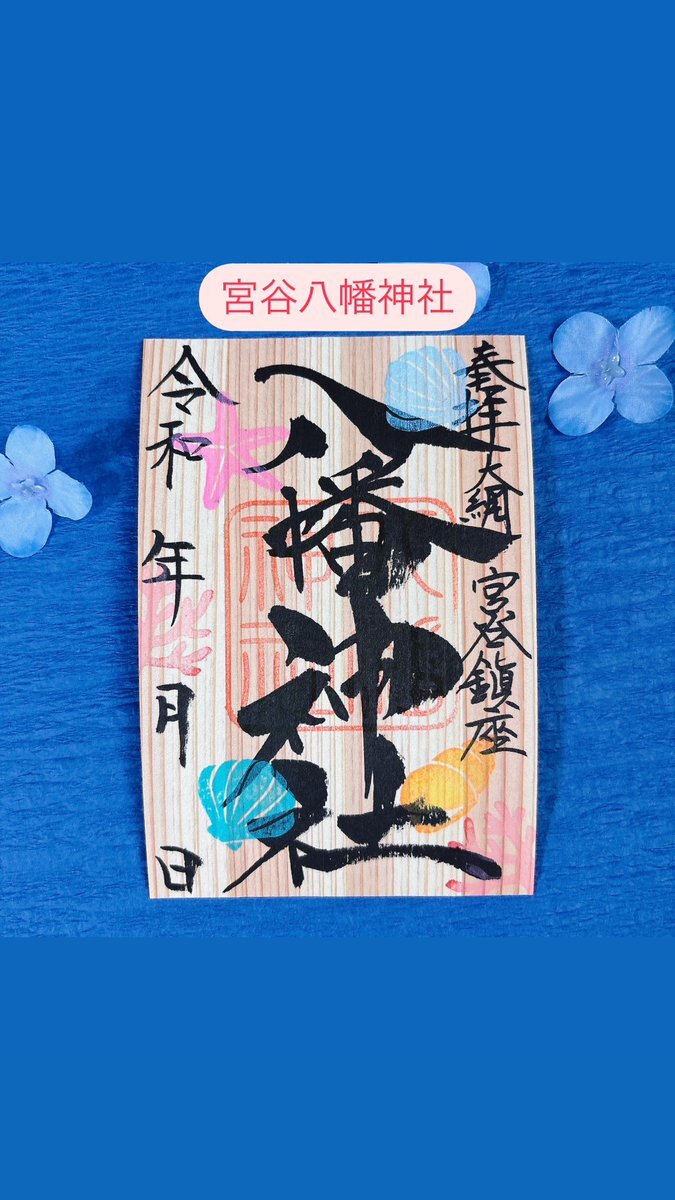 宮谷八幡神社
奉拝 大網 宮谷鎮座
八幡神社
八幡神社
令和 年 月 日